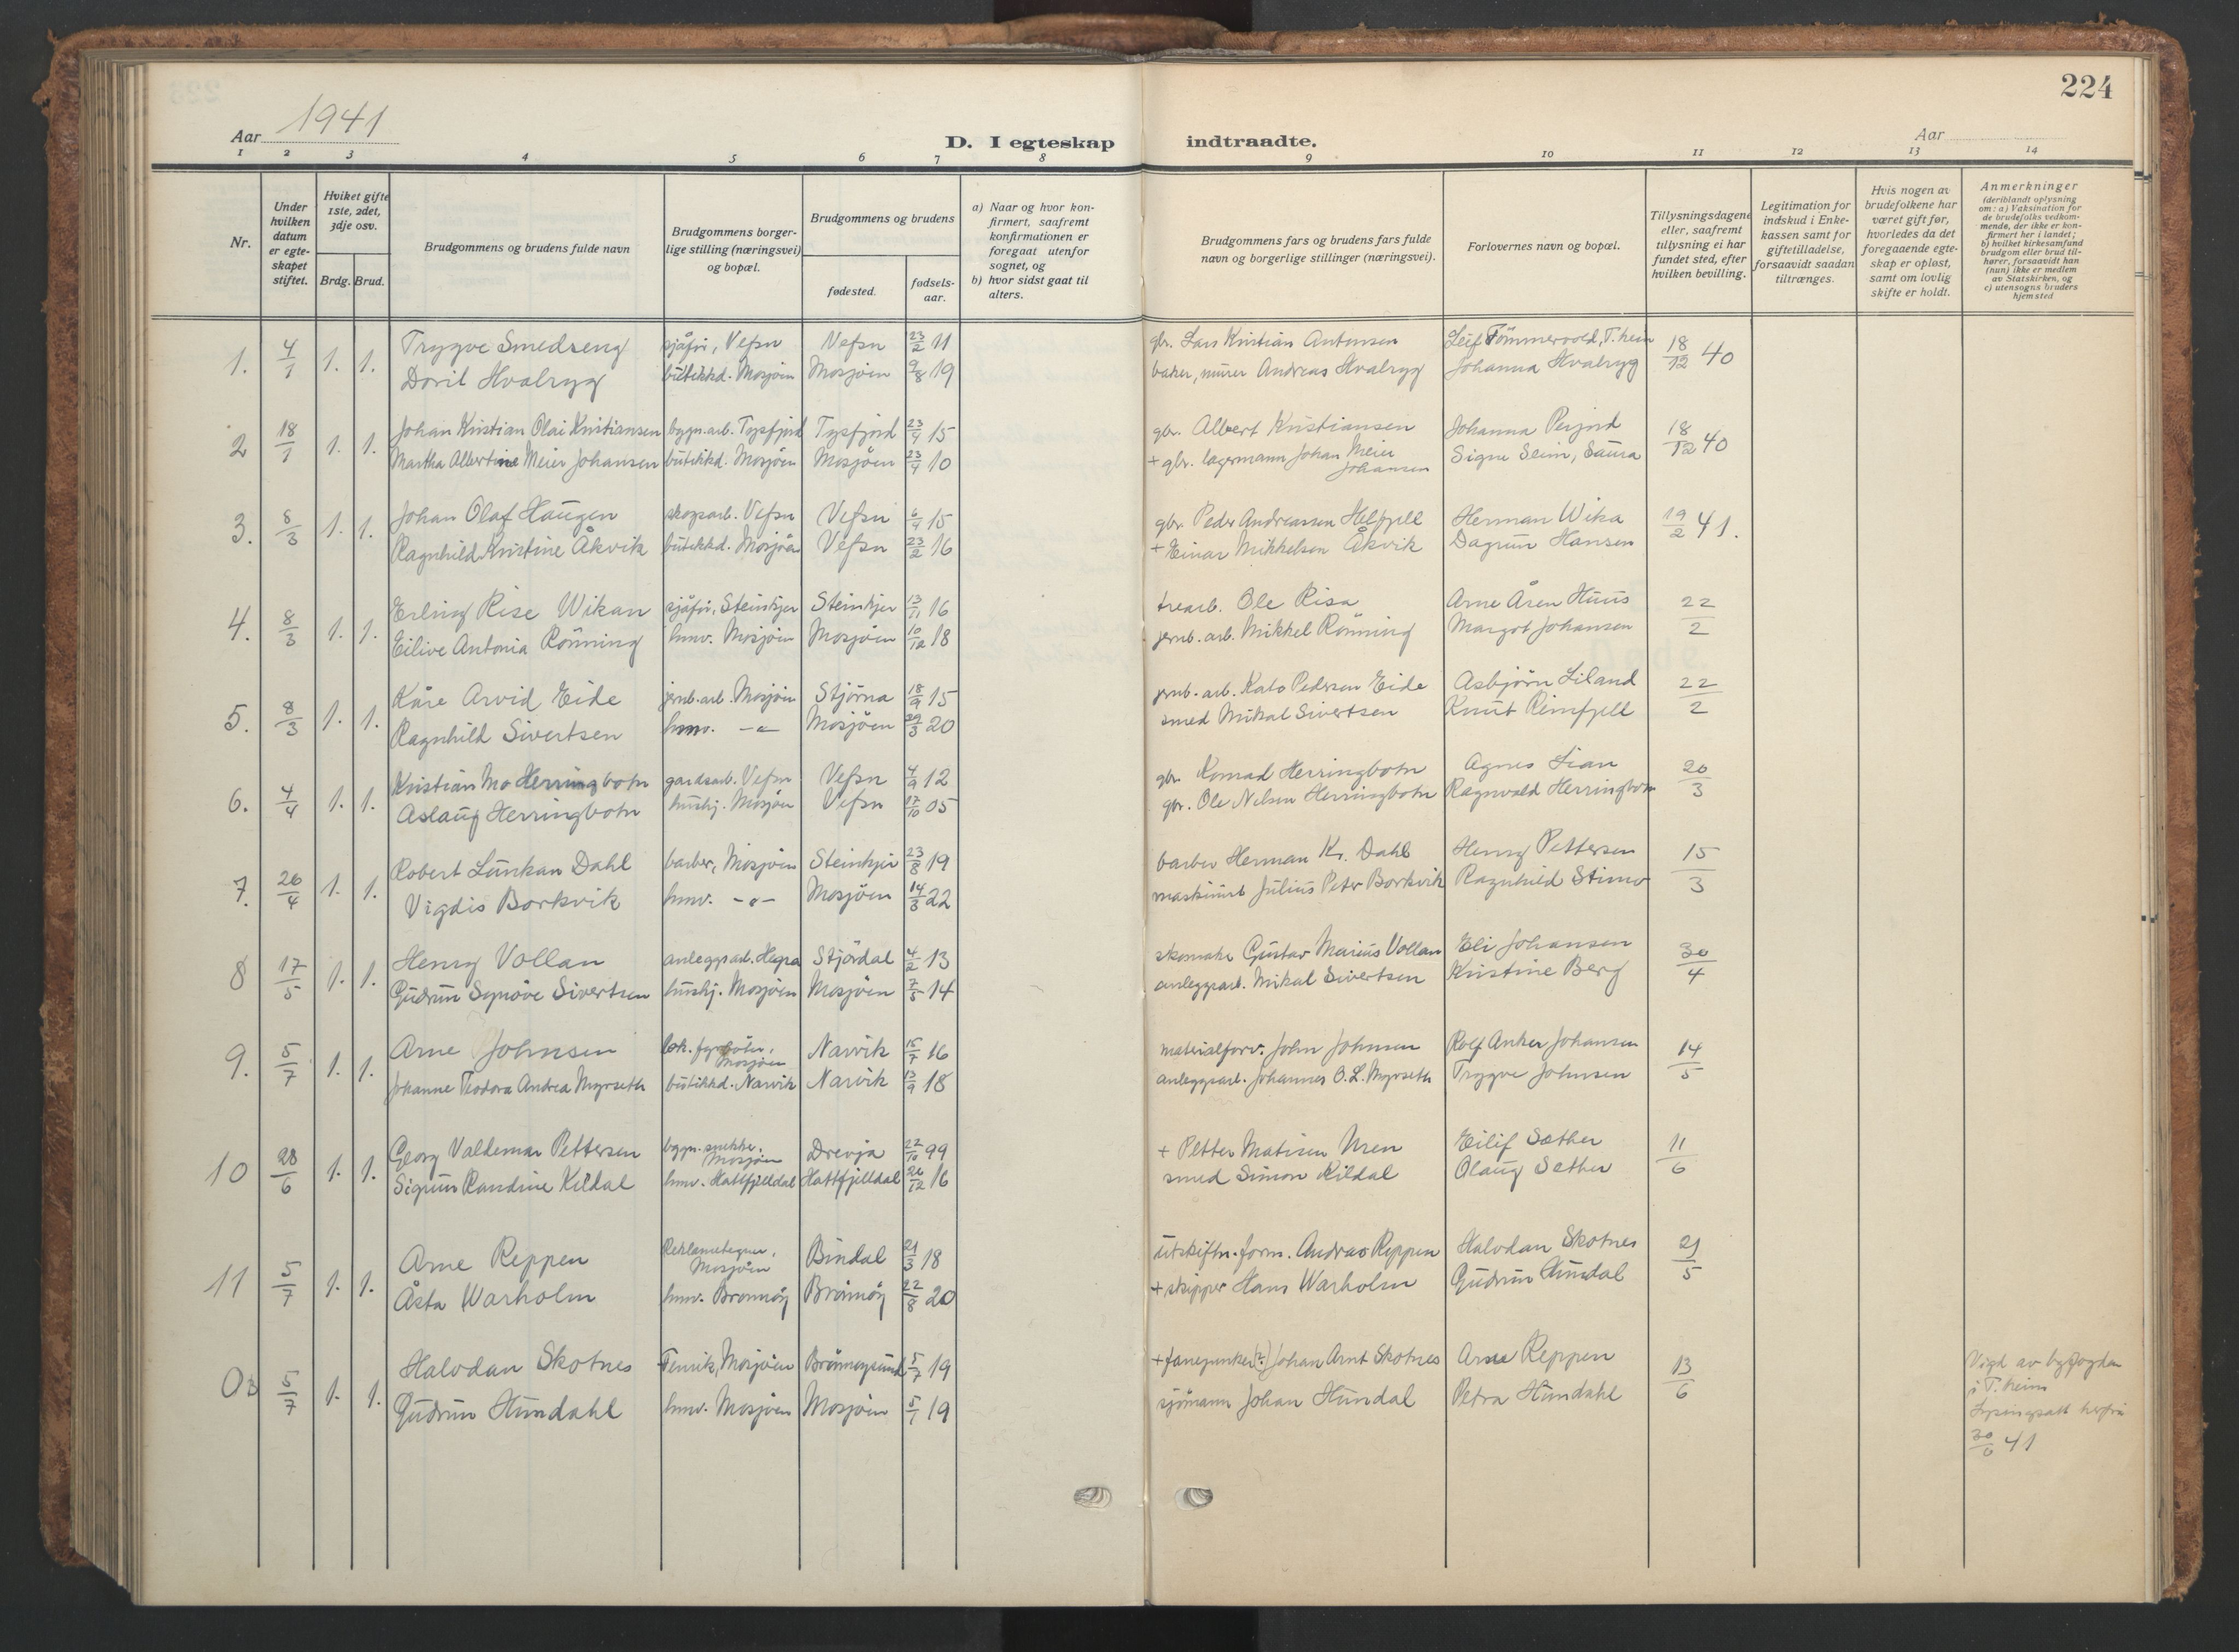 224
Aar 1941
D. I egteskap indtraadte.
Aar
1 2 3 4 5 6 7 8 9 10 11 12 13 14
Nr.
Under hvilken datum er egteskapet stiftet.
Hviket gifte 1ste, 2det, 3dje osv.
Brdg. Brud.
Brudgommens og brudens fulde navn
Brudgommens borgerlige stilling (næringsvei) og bopæl.
Brudgommens og brudens
fødested.
fødselsaar.
a) Naar og hvor konfirmert, saafremt konfirmationen er foregaat utenfor sognet, og
b) hvor sidst gaat til alters.
Brudgommens fars og brudens fars fulde navn og borgerlige stillinger (næringsvei).
Forlovernes navn og bopæl.
Tillysningsdagene eller, saafremt tillysning ei har fundet sted, efter hvilken bevilling.
Legitimation for indskud i Enkekassen samt for giftetilladelse, forsaavidt saadan tiltrænges.
Hvis nogen av brudefolkene har været gift før, hvorledes da det foregaaende egteskap er opløst, samt om lovlig skifte er holdt.
Anmerkninger (deriblandt oplysning om: a) Vaksination for de brudefolks vedkommende, der ikke er konfirmert her i landet; b) hvilket kirkesamfund brudgom eller brud tilhører, forsaavidt han (hun) ikke er medlem av Statskirken, og c) utensogns bruders hjemsted
1. 4/1 1. 1. Trygve Smedseng sjåfør, Vefsn Vefsn 23/2 11 gbr. Lars Kristian Antonsen Leif Tömmervold, T.heim 18/12 40
Doril Hvalryg butikkd. Mosjöen Mosjöen 9/8 19 baker, murer Andreas Hvalryg Johanna Hvalryg
2 18/1 1. 1. Johan Kristian Olai Kristiansen bygn.arb. Tysfjord Tysfjord 23/4 15 gbr. Albert Kristiansen Johanna Perjord 18/12 40
Martha Albertine Meier Johansen butikkd. Mosjöen Mosjöen 23/4 10 + gbr. lagermann Johan Meier Johansen Signe Seim, Saura
3. 8/3 1. 1. Johan Olaf Haugen skogsarb. Vefsn Vefsn 6/9 15 gbr. Peder Andreassen Helfjell Herman Wika 19/2 41.
Ragnhild Kristine Åkvik butikkd. Mosjöen Vefsn 23/2 16 + Einar Mikkelsen Åkvik Dagrun Hansen
4. 8/3 1. 1. Erling Rise Wikan sjåfør, Steinkjer Steinkjer 13/11 16 trearb. Ole Risa Arne Åsen Huus 22/2
Eilive Antonia Rönning hmv. Mosjöen Mosjöen 10/12 18 jernb. arb. Mikkel Rönning Margot Johansen
5. 8/3 1. 1. Kåre Arvid Eide jernb. arb. Mosjöen Stjörna 18/9 15 jernb. arb. Kato Pedersen Eide Asbjörn Liland 22/2
Ragnhild Sivertsen hmv. -"- Mosjöen 29/3 20 smed Mikal Sivertsen Knut Reinfjell
6. 4/4 1. 1. Kristian Mo Herringbotn gardsarb. Vefsn Vefsn 4/9 12 gbr. Konrad Herringbotn Agnes Lian 20/3
Aslaug Herringbotn hushj. Mosjöen Vefsn 17/10 05 gbr. Ole Nilsen Herringbotn Ragnvald Herringbotn
7. 26/4 1. 1. Robert Lunkan Dahl barber, Mosjöen Steinkjer 23/8 19 barber Herman Kr. Dahl Henry Pettersen 15/3
Vigdis Borkvik hmv. -"- Mosjöen 14/3 22 maskinist Julius Peter Borkvik Ragnhild Stimo
8 17/5 1. 1. Henry Vollan anleggsarb. Hegra Stjördal 4/2 13 skomaker Gustav Marius Vollan Eli Johansen 30/4
Gudrun Synöve Sivertsen hushj. Mosjöen Mosjöen 7/5 14 anleggsarb. Mikal Sivertsen Kristine Berg
9. 5/7 1. 1. Arne Johnsen lok. fyrböter, Mosjöen Narvik 15/7 16 materialforv. John Johnsen Rolf Anker Johansen 14/5
Johanne Teodora Andrea Myrseth butikkd. Narvik Narvik 13/9 18 anleggsarb. Johannes O. L. Myrseth Trygve Johnsen
10 28/6 1. 1. Georg Valdemar Pettersen bygn. snekker, Mosjöen Drevja 22/10 99 + Petter Matisen Uren Eilif Sæther 11/6
Sigrun Randine Kildal hmv. Hattfjelldal Hattfjelldal 26/12 16 smed Simon Kildal Olaug Sæther
11 5/7 1. 1. Arne Reppen Reklametegner, Mosjöen Bindal 21/3 18 utskiftn. form. Andreas Reppen Halvdan Skotnes 21/5
Åsta Warholm hmv. Brönnöy Brönnöy 22/8 20 + skipper Hans Warholm Gudrun Hundal
0B 5/7 1. 1. Halvdan Skotnes Fenrik, Mosjöen Brönnöysund 5/7 19 + fanejunker(?) Johan Arnt Skotnes Arne Reppen 13/6 Vigd av byfogden i T.heim
Gudrun Hundahl hmv. Mosjöen Mosjöen 5/1 19 sjömann Johan Hundal Petra Hundahl Lysingsatt herfra 30/6 41